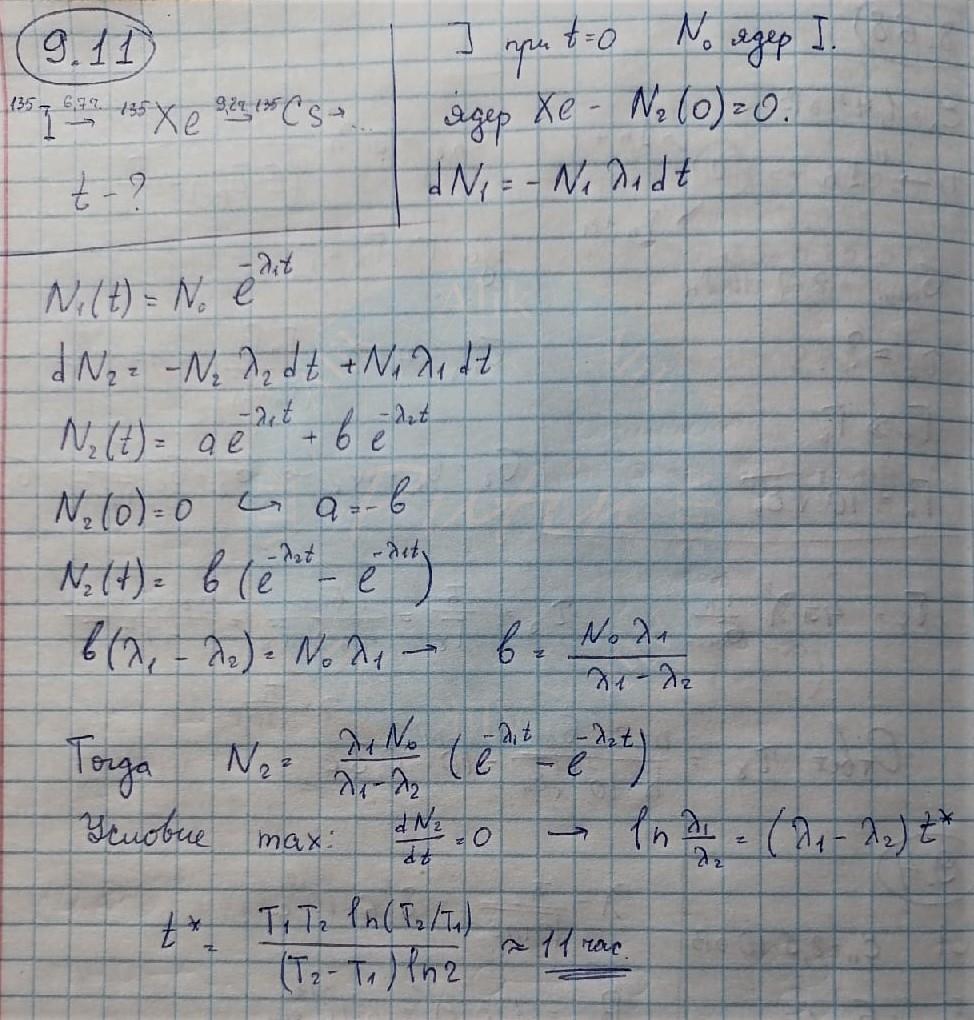 9.11
¹³⁵I →(6,7ч) ¹³⁵Xe →(9,2ч) ¹³⁵Cs → ...
t - ?
] при t=0 N₀ ядер I.
ядер Xe - N₂(0)=0.
dN₁ = - N₁ λ₁ dt
N₁(t) = N₀ e^(-λ₁t)
dN₂ = -N₂ λ₂ dt + N₁ λ₁ dt
N₂(t) = a e^(-λ₁t) + b e^(-λ₂t)
N₂(0) = 0 ↪ a = - b
N₂(t) = b (e^(-λ₂t) - e^(-λ₁t))
b(λ₁ - λ₂) = N₀ λ₁ → b = N₀ λ₁ / (λ₁ - λ₂)
Тогда N₂ = λ₁ N₀ / (λ₁ - λ₂) (e^(-λ₁t) - e^(-λ₂t))
Условие max: dN₂/dt = 0 → ln λ₁/λ₂ = (λ₁ - λ₂) t*
t* = T₁ T₂ ln(T₂/T₁) / ((T₂ - T₁) ln2) ≈ 11 час.